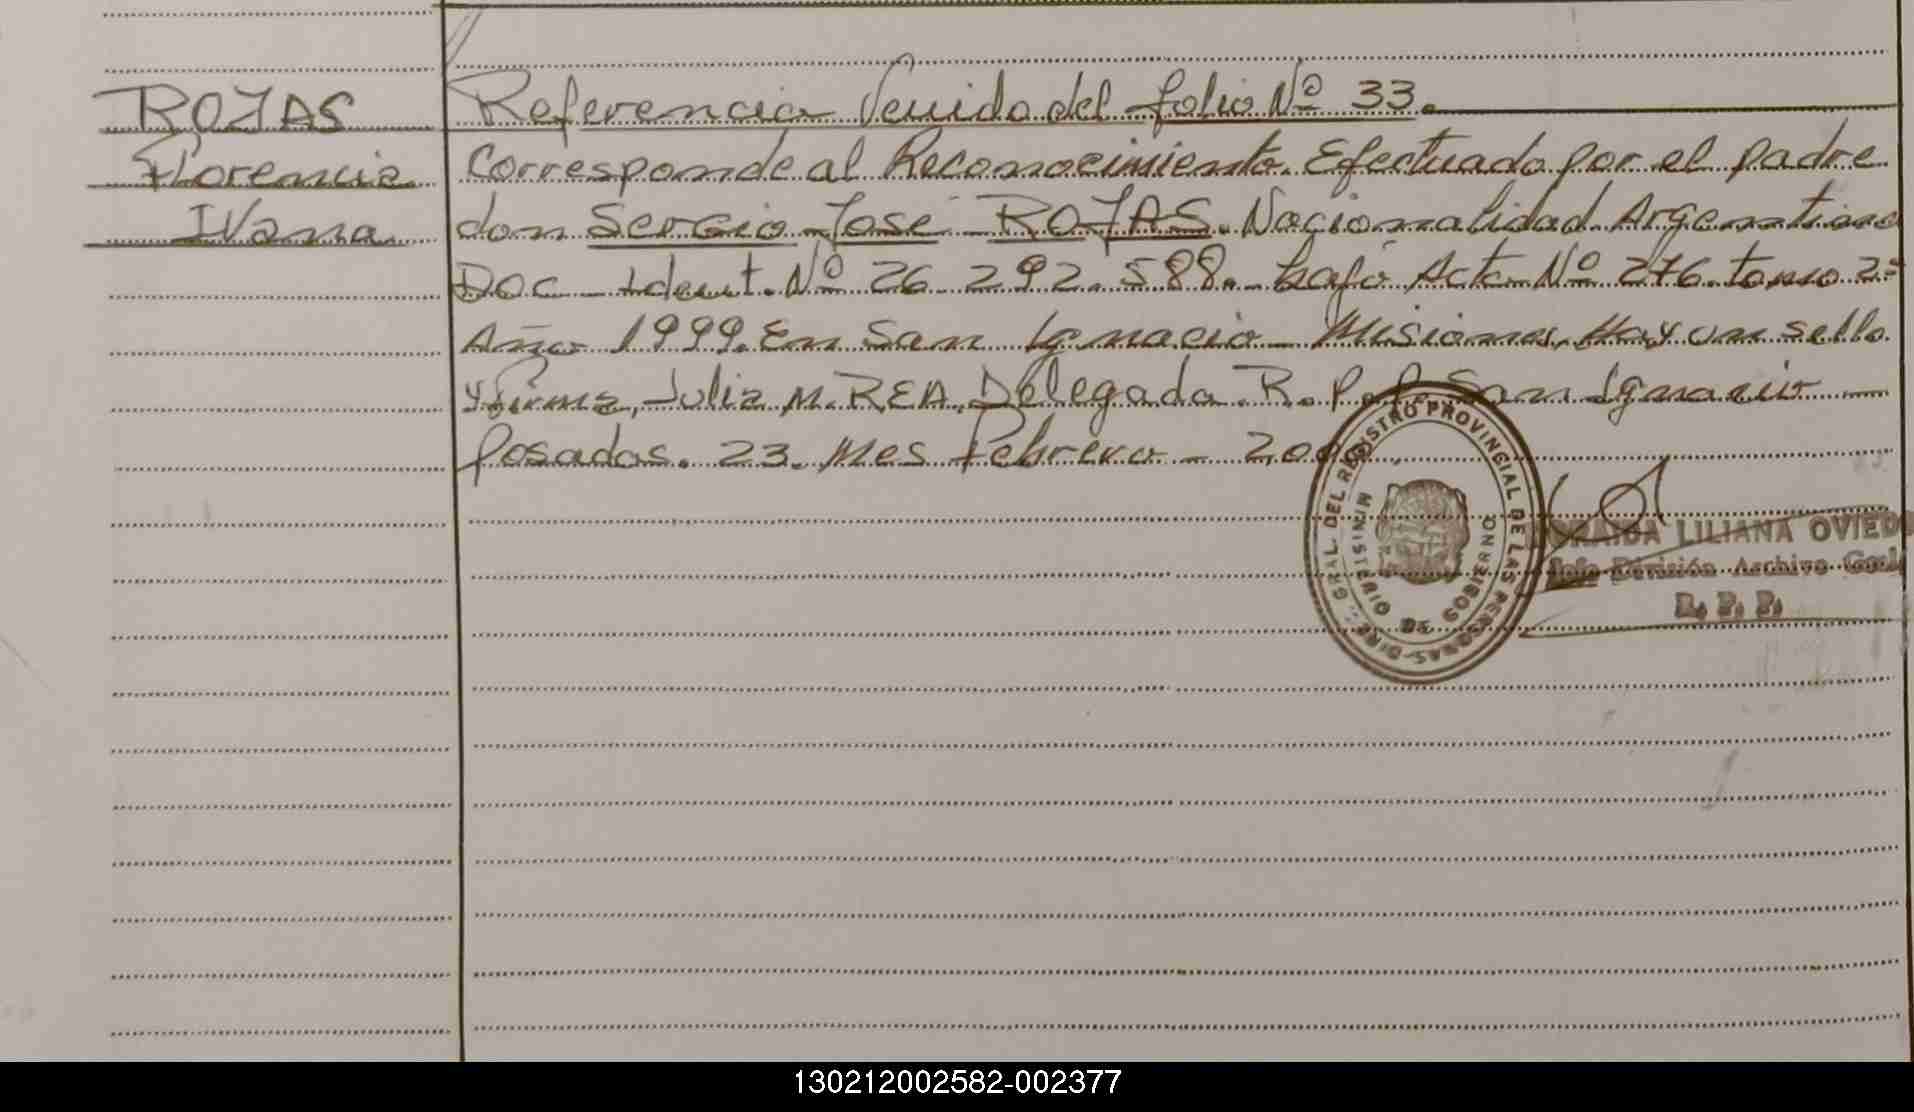 ROJAS
Florencia
IVana
Referencia Venido del folio Nº 33.
Corresponde al Reconocimiento. Efectuado por el padre
don Sergio José ROJAS. Nacionalidad Argentino
Doc. Ident. Nº 26.292.588. bajo Acta Nº 276. tomo 2º
Año 1999. En San Ignacio Misiones. Hay un sello
y firma, Julia M. REA. Delegada. R. P. P. San Ignacio
Posadas. 23. Mes Febrero - 200
DIRE... GRAL. DEL REGISTRO PROVINCIAL DE LAS PERSONAS
MINISTERIO DE GOBIERNO
LILIANA OVIEDO
Jefe División Archivo Gral.
R. P. P.
130212002582-002377